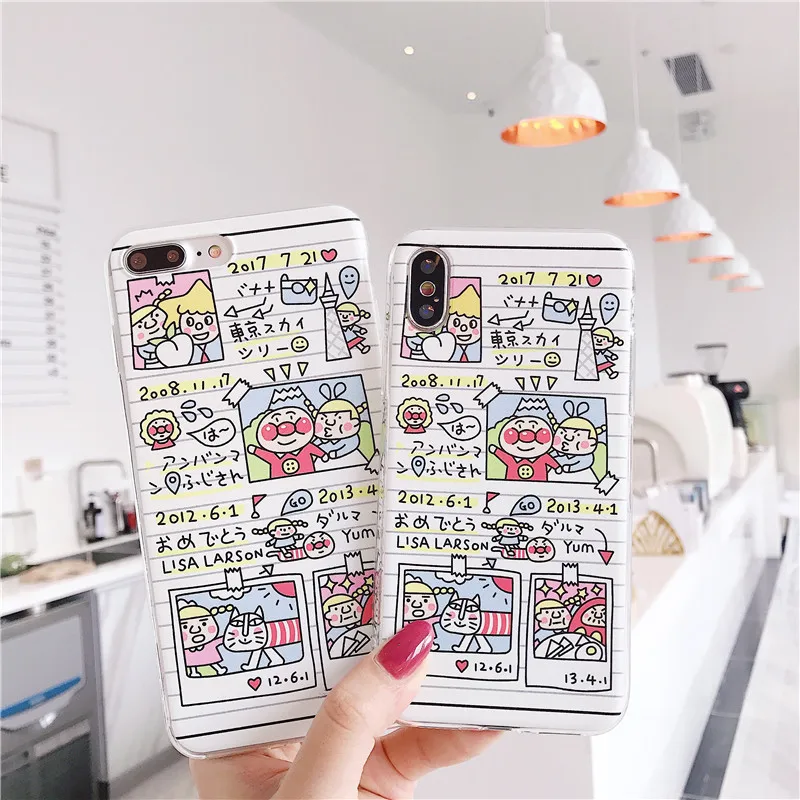 2017 7 21
バナナ
東京スカイ
ツリー
2008.11.17
は〜
アンパンマ
ンふじさん
GO
2012・6・1
2013・4・1
おめでとう
ダルマ
LISA LARSON
Yum
12・6・1
2017 7 21
バナナ
東京スカイ
ツリー
2008.11.17
は〜
アンパンマ
ンふじさん
GO
2012・6・1
2013・4・1
おめでとう
ダルマ
LISA LARSON
Yum
12・6・1
13.4.1